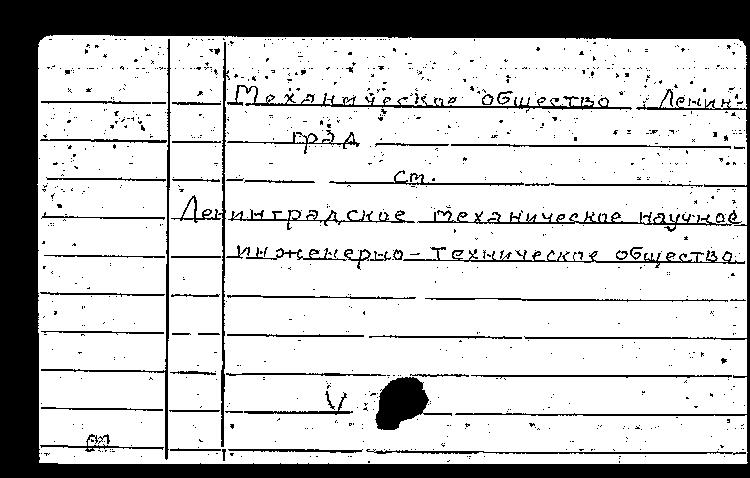 Механическое общество. Ленин-
град
ст.
Ленинградское механическое научное
инженерно-техническое общество.
V